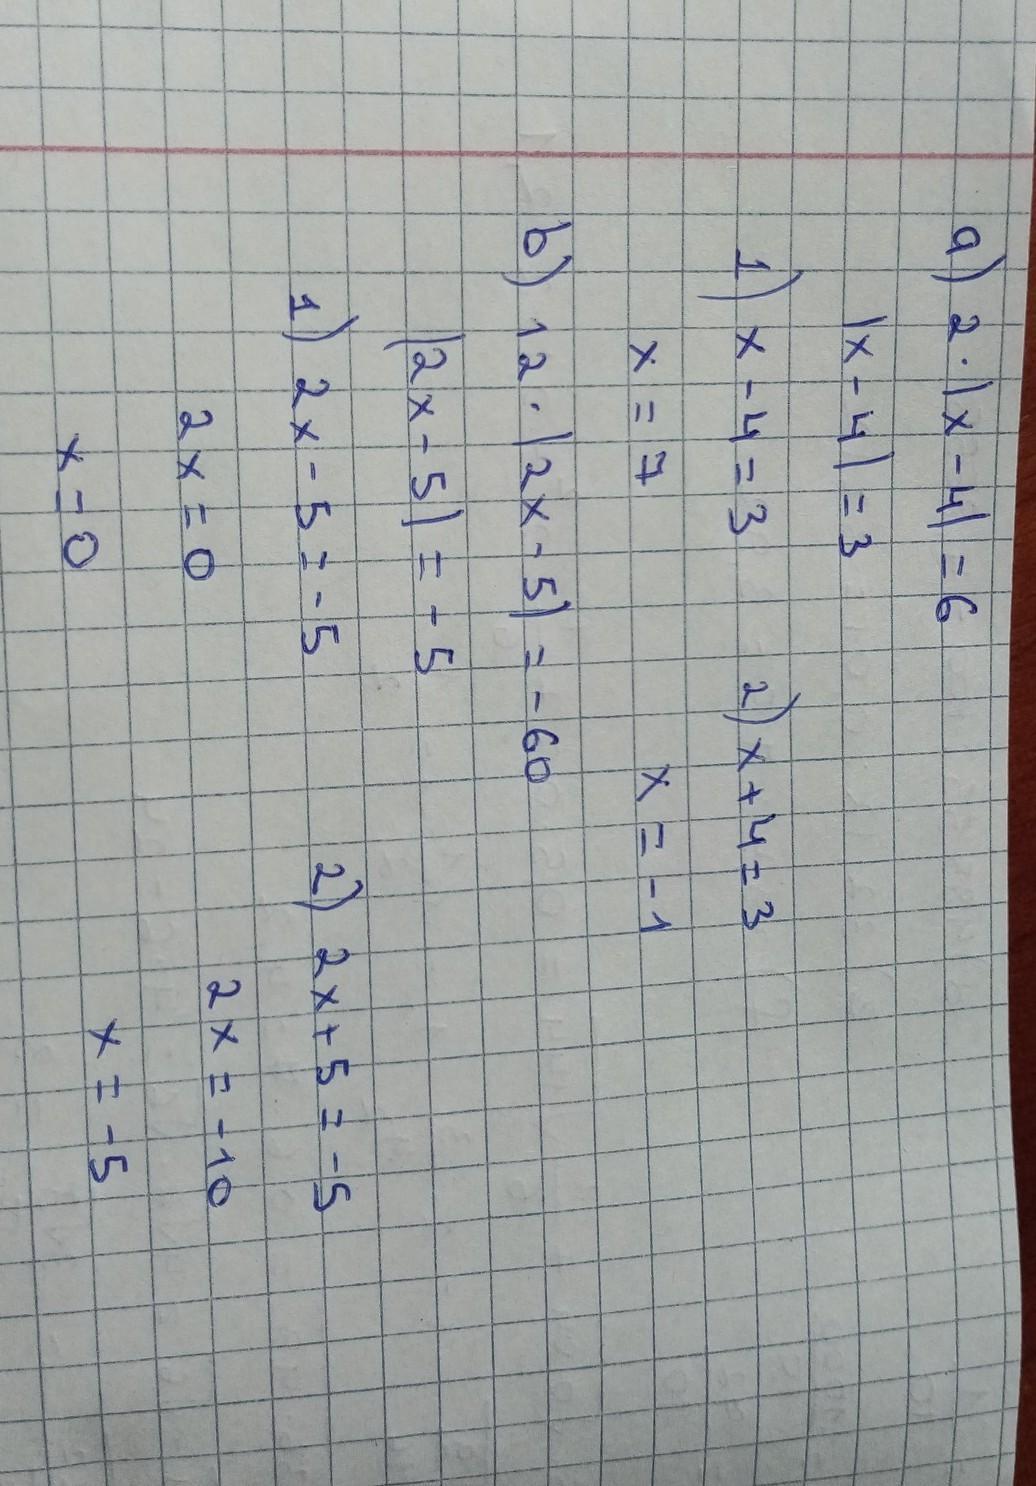 a) 2 · |x - 4| = 6
|x - 4| = 3
1) x - 4 = 3 2) x + 4 = 3
x = 7 x = -1
b) 12 · |2x - 5| = -60
|2x - 5| = -5
1) 2x - 5 = -5 2) 2x + 5 = -5
2x = 0 2x = -10
x = 0 x = -5